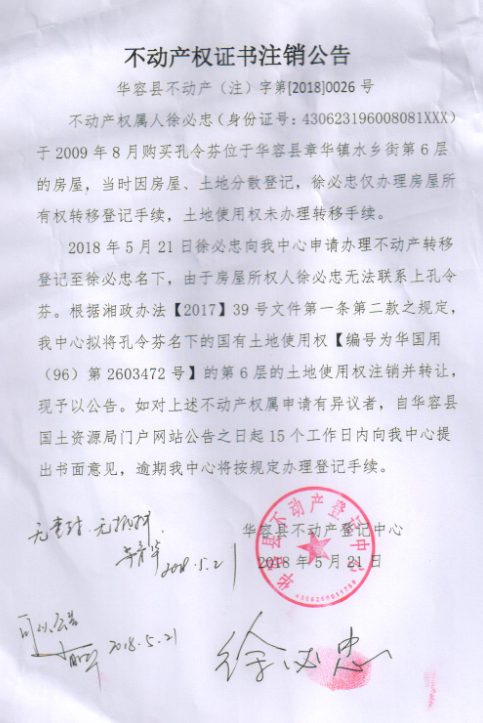 不动产权证书注销公告
华容县不动产（注）字第[2018]0026 号
不动产权属人徐必忠（身份证号：430623196008081XXX）
于 2009 年 8 月购买孔令芬位于华容县章华镇水乡街第 6 层
的房屋，当时因房屋、土地分散登记，徐必忠仅办理房屋所
有权转移登记手续，土地使用权未办理转移手续。
2018 年 5 月 21 日徐必忠向我中心申请办理不动产转移
登记至徐必忠名下，由于房屋所权人徐必忠无法联系上孔令
芬。根据湘政办法【2017】39 号文件第一条第二款之规定，
我中心拟将孔令芬名下的国有土地使用权【编号为华国用
（96）第 2603472 号】的第 6 层的土地使用权注销并转让，
现予以公告。如对上述不动产权属申请有异议者，自华容县
国土资源局门户网站公告之日起 15 个工作日内向我中心提
出书面意见，逾期我中心将按规定办理登记手续。
华容县不动产登记中心
2018 年 5 月 21 日
华容县不动产登记中心
无查封.无抵押.
2018.5.21
可以公告
2018.5.21
徐必忠